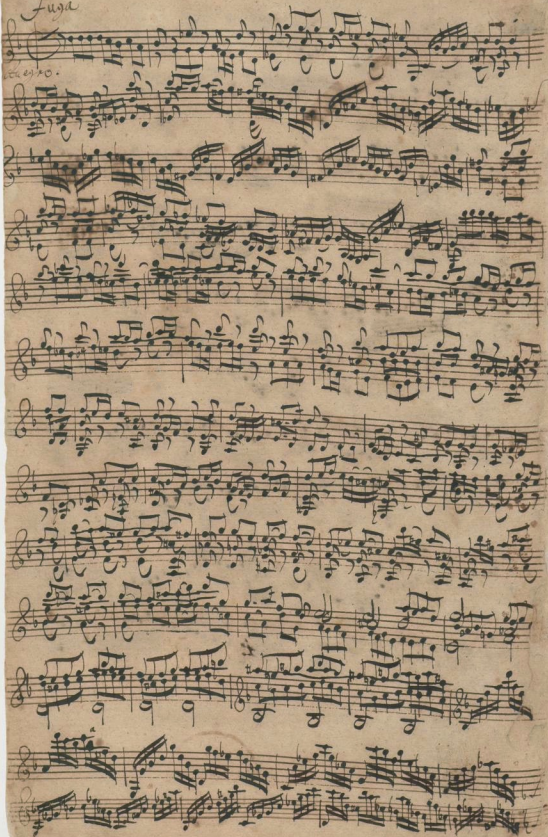 Fuga
Allegro.